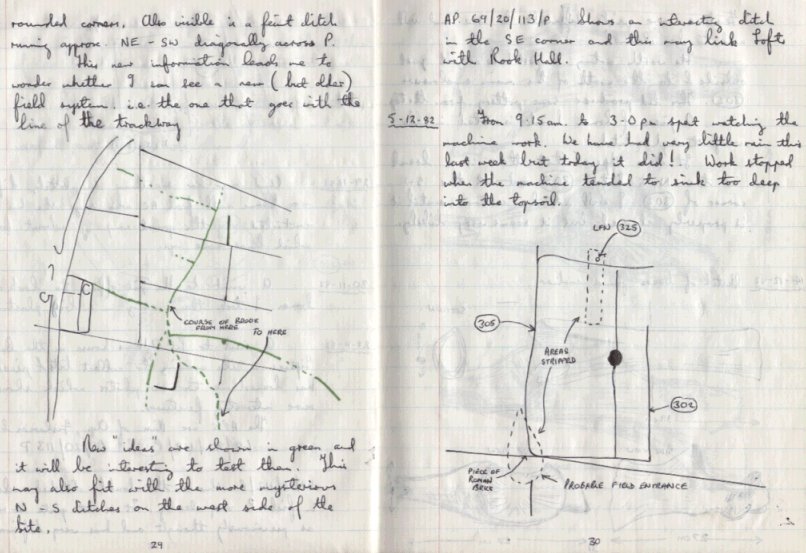 rounded corners. Also visible is a feint ditch
running approx. NE - SW diagonally across P.
This new information leads me to
wonder whether I can see a new (but older)
field system. i.e. the one that goes with the
line of the trackway
?
C
C
COURSE OF BROOK
FROM HERE TO HERE
New "ideas" are shown in green and
it will be interesting to test them. This
may also fit with the more mysterious
N - S ditches on the west side of the
site.
29
A.P. 64/20/113/P Shows an interesting ditch
in the SE corner and this may link Loft
with Rook Hill.
5-12-92 From 9.15am. to 3-0pm spent watching the
machine work. We have had very little rain this
last week but today it did! Work stopped
when the machine tended to sink too deep
into the topsoil.
LFN 325
305
AREAS
STRIPPED
302
PIECE OF
ROMAN
BRICK
PROBABLE FIELD ENTRANCE
30